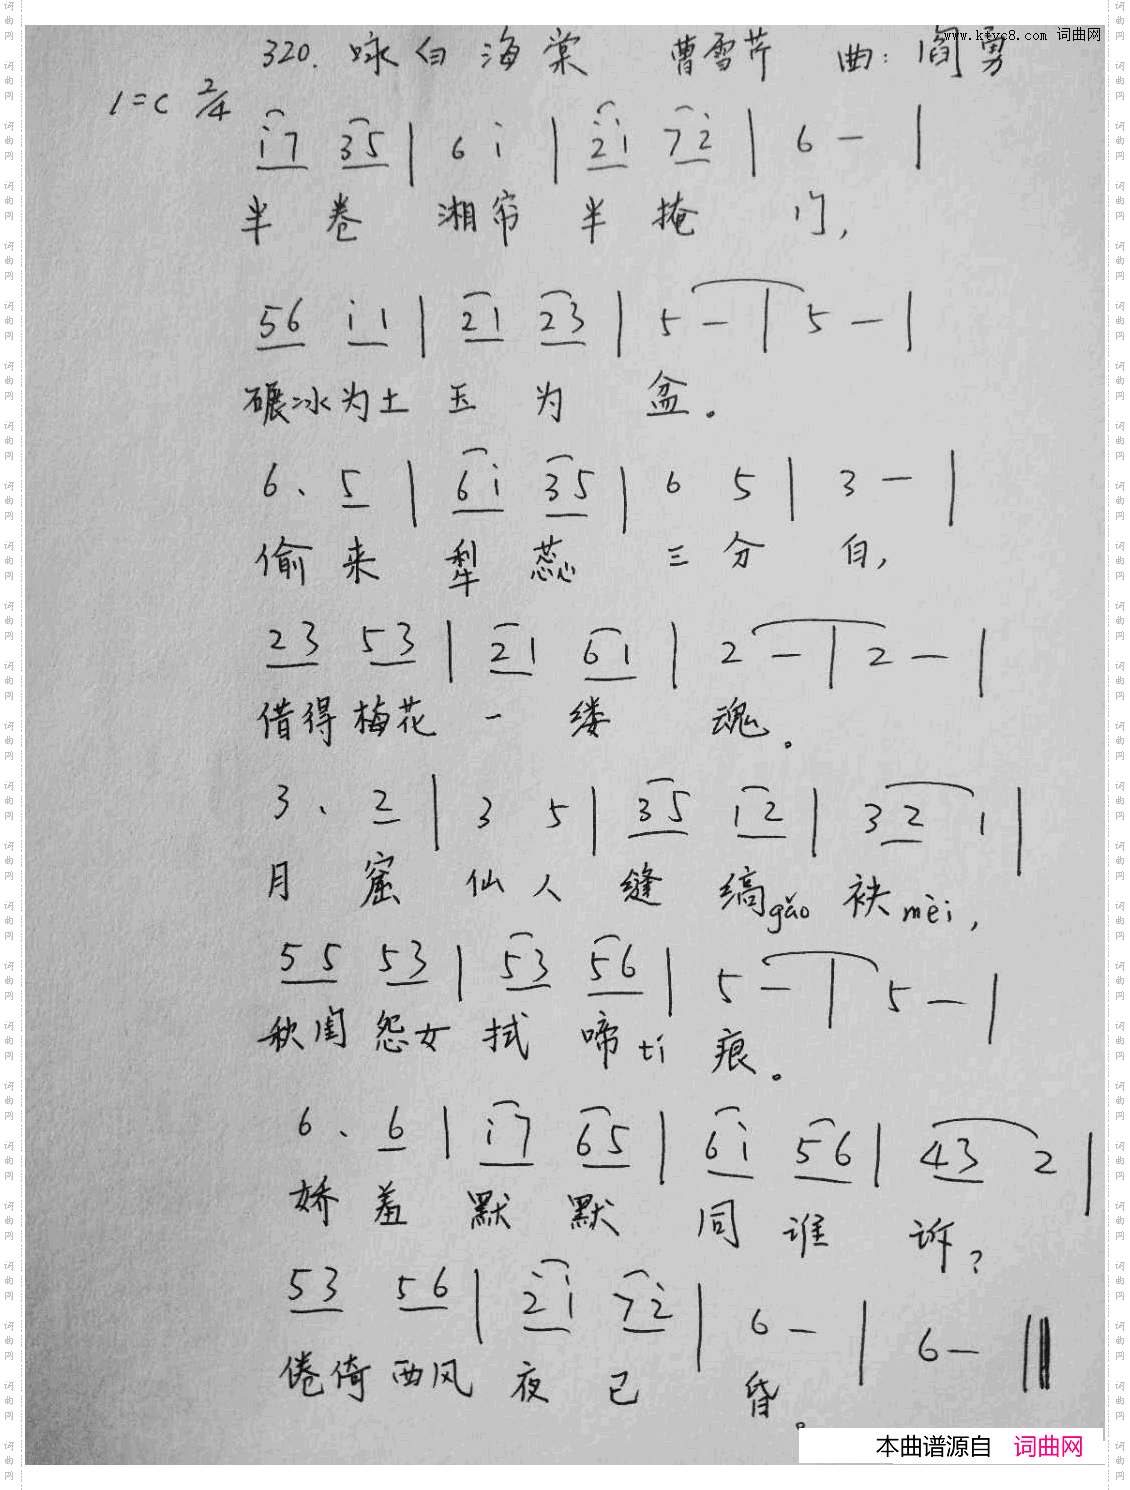 www.ktvc8.com 词曲网
320. 咏白海棠 曹雪芹 曲：阎勇
1=C 2/4
i7 35 | 6 i | 2i 7i | 6 — |
半 卷 湘帘 半 掩 门，
56 i1 | 21 23 | 5 — | 5 — |
碾冰为土 玉 为 盆。
6、5 | 6i 35 | 6 5 | 3 — |
偷 来 犁 蕊 三 分 白，
23 53 | 21 61 | 2 — | 2 — |
借得梅花 一 缕 魂。
3、2 | 3 5 | 35 12 | 32 1 |
月 窟 仙 人 缝 缟gǎo 袂mèi，
55 53 | 53 56 | 5 — | 5 — |
秋闺 怨女 拭 啼tí 痕。
6、6 | i7 65 | 6i 56 | 43 2 |
娇 羞 默 默 同 谁 诉？
53 56 | 2i 7i | 6 — | 6 — ‖
倦倚 西风 夜 已 昏。
本曲谱源自 词曲网